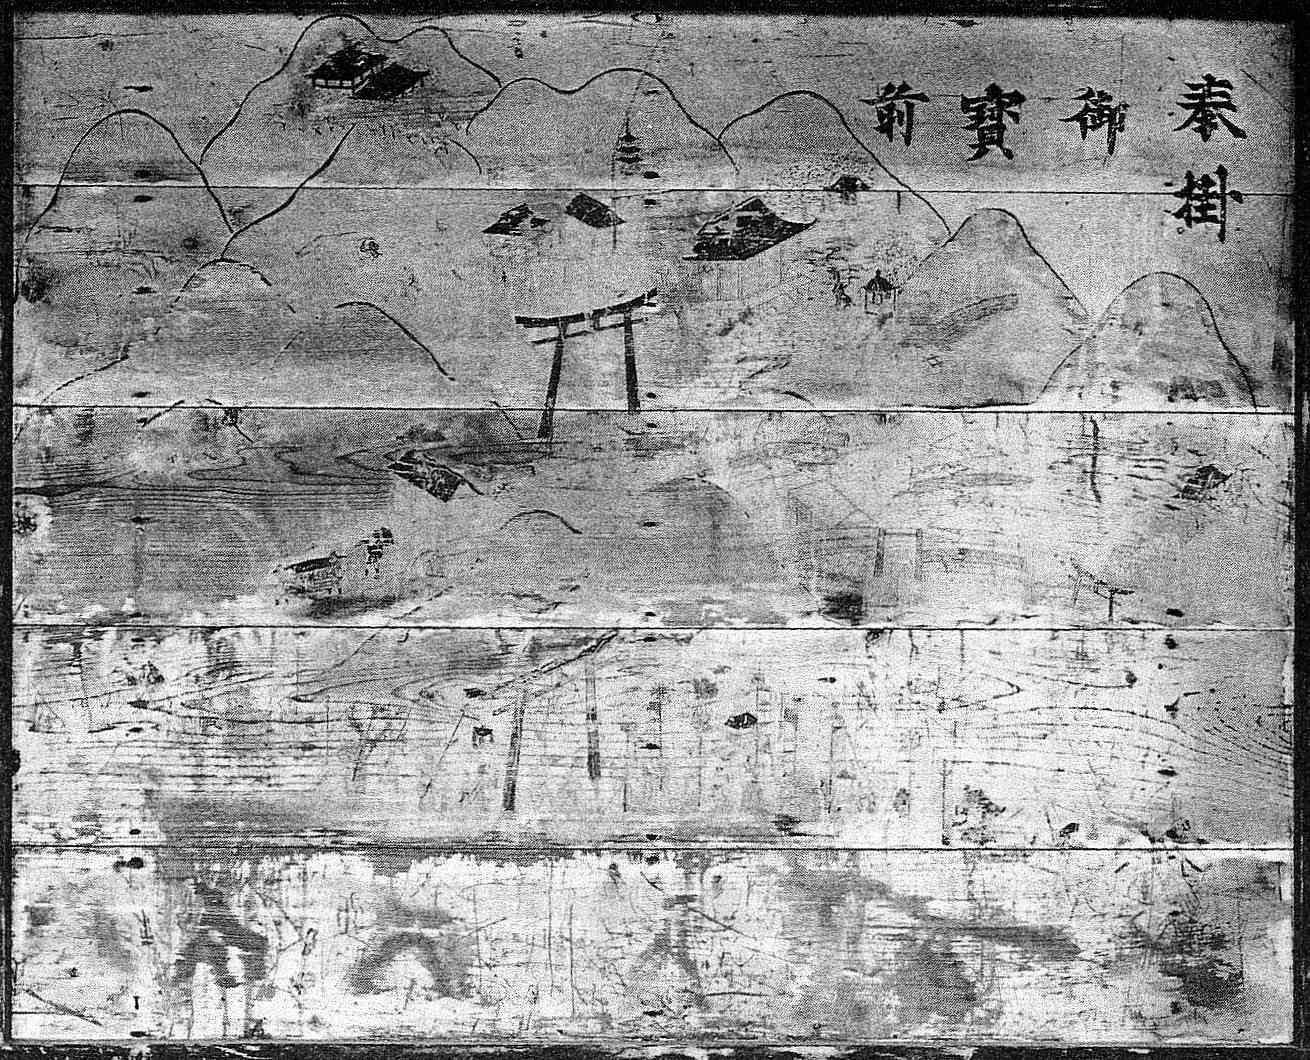 奉掛
御
寶
前